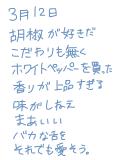 3月12日
胡椒が好きだ
こだわりも無く
ホワイトペッパーを買った
香りが上品すぎる
味がしねえ
まあいい
バカな舌を
それでも愛そう。